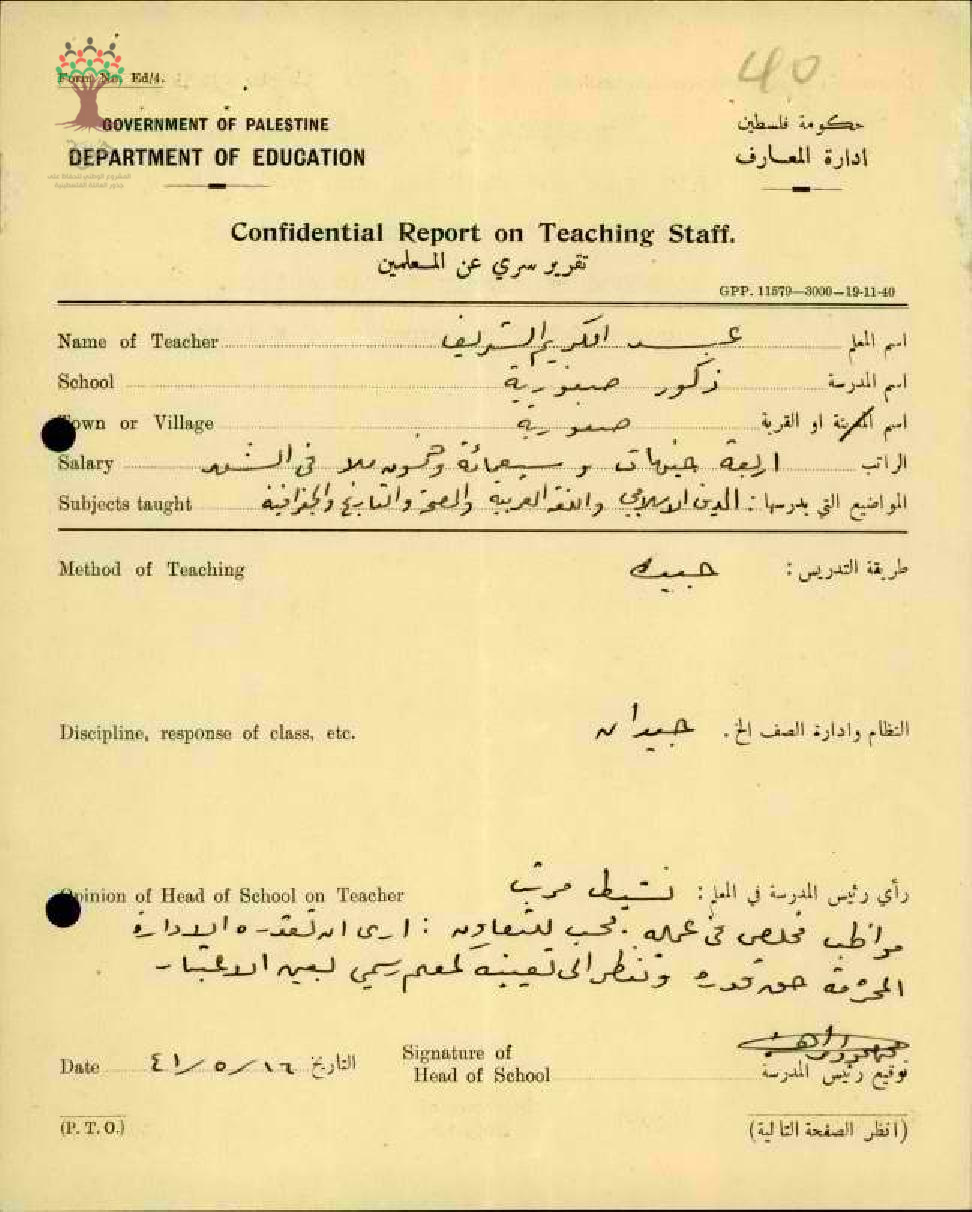 40
Form No. Ed/4.
GOVERNMENT OF PALESTINE حكومة فلسطين
DEPARTMENT OF EDUCATION ادارة المعارف
المشروع الوطني للحفاظ على
جذور العائلة الفلسطينية
Confidential Report on Teaching Staff.
تقرير سري عن المعلمين
GPP. 11579—3000—19-11-40
Name of Teacher عبد الكريم الشريف اسم المعلم
School ذكور صفورية اسم المدرسة
Town or Village صفورية اسم المدينة او القرية
Salary اربعة جنيهات و سبعمائة وخمسون ملا في الشهر الراتب
Subjects taught المواضيع التي يدرسها : الدين الاسلامي واللغة العربية والصحة والتاريخ والجغرافية
Method of Teaching طريقة التدريس : جيدة
Discipline, response of class, etc. النظام وادارة الصف الخ . جيدان
Opinion of Head of School on Teacher رأي رئيس المدرسة في المعلم : نشيط مرتب
مواظب مخلص في عمله . محب للتعاون : ارى ان تقدره الادارة
المحترمة حق قدره وتنظر الى تعيينه كمعلم رسمي بعين الاعتبار
Date ٤١/٥/١٦ التاريخ
Signature of
Head of School توقيع رئيس المدرسة
(P. T. O.) (انظر الصفحة التالية)